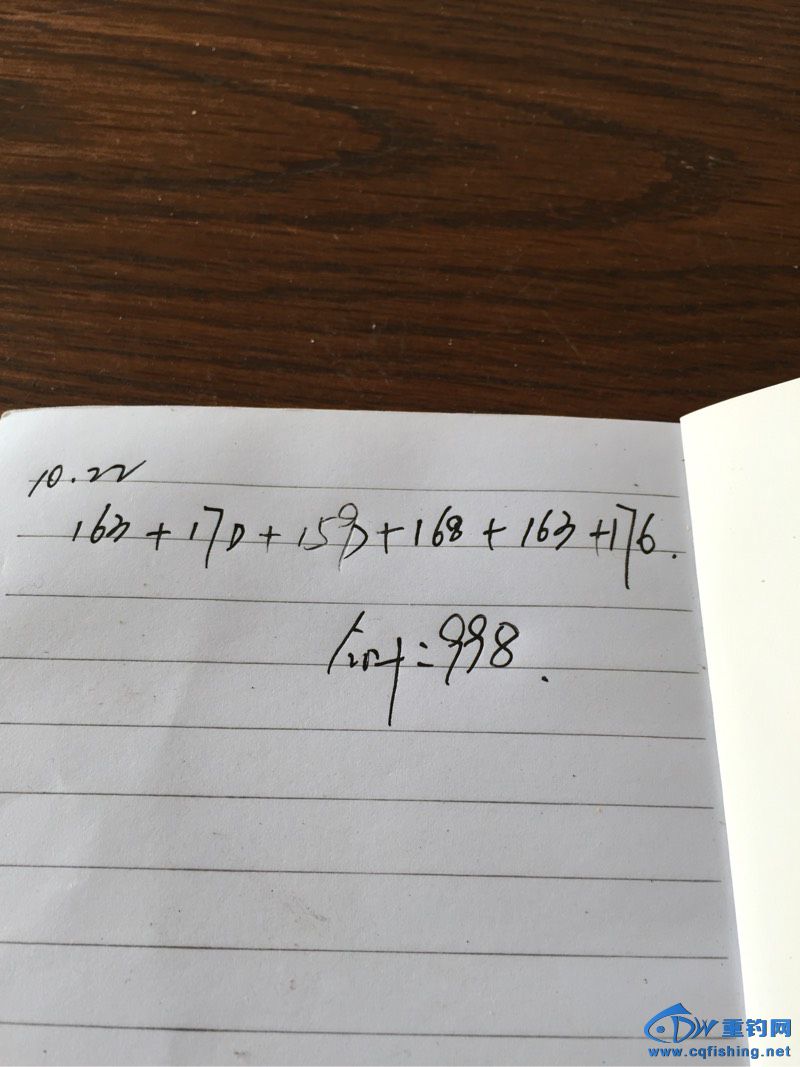 10.22
163 + 170 + + 168 + 163 + 176.
合计=998.
DW重钓网
www.cqfishing.net